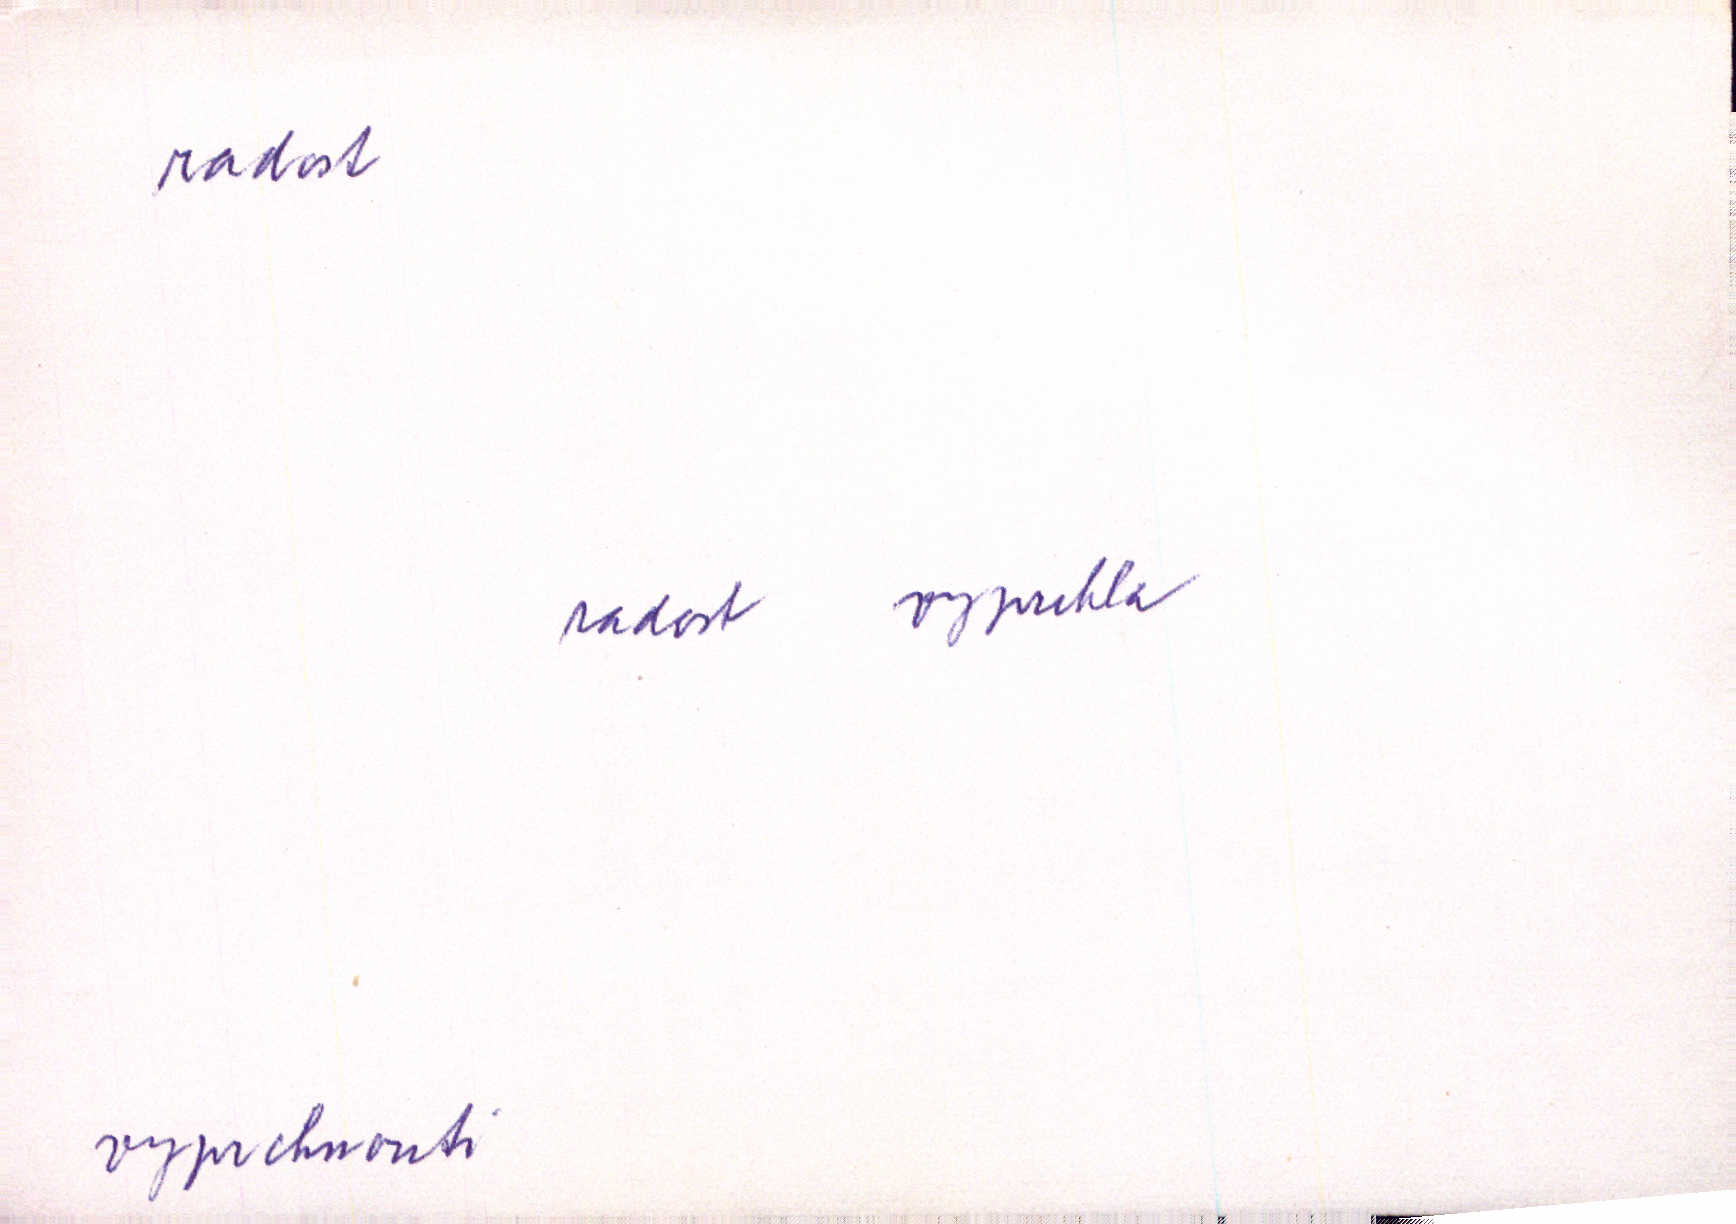 radost
radost vyprchla
vyprchnouti